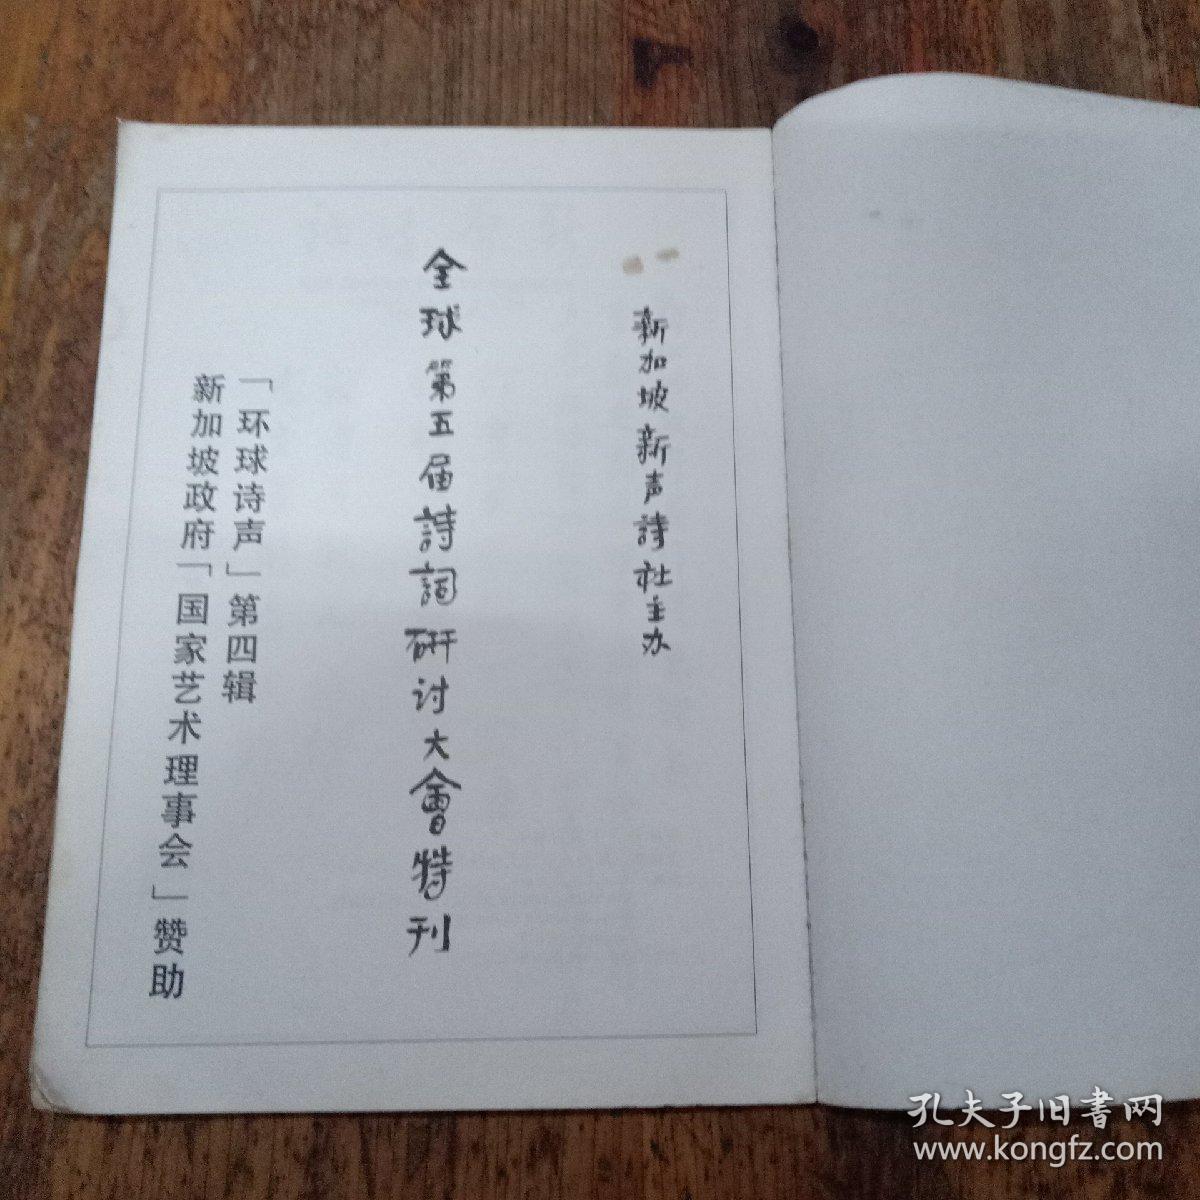 新加坡新声詩社主办
全球第五届詩詞研讨大會特刊
「环球诗声」第四辑
新加坡政府「国家艺术理事会」赞助
孔夫子旧書网
www.kongfz.com